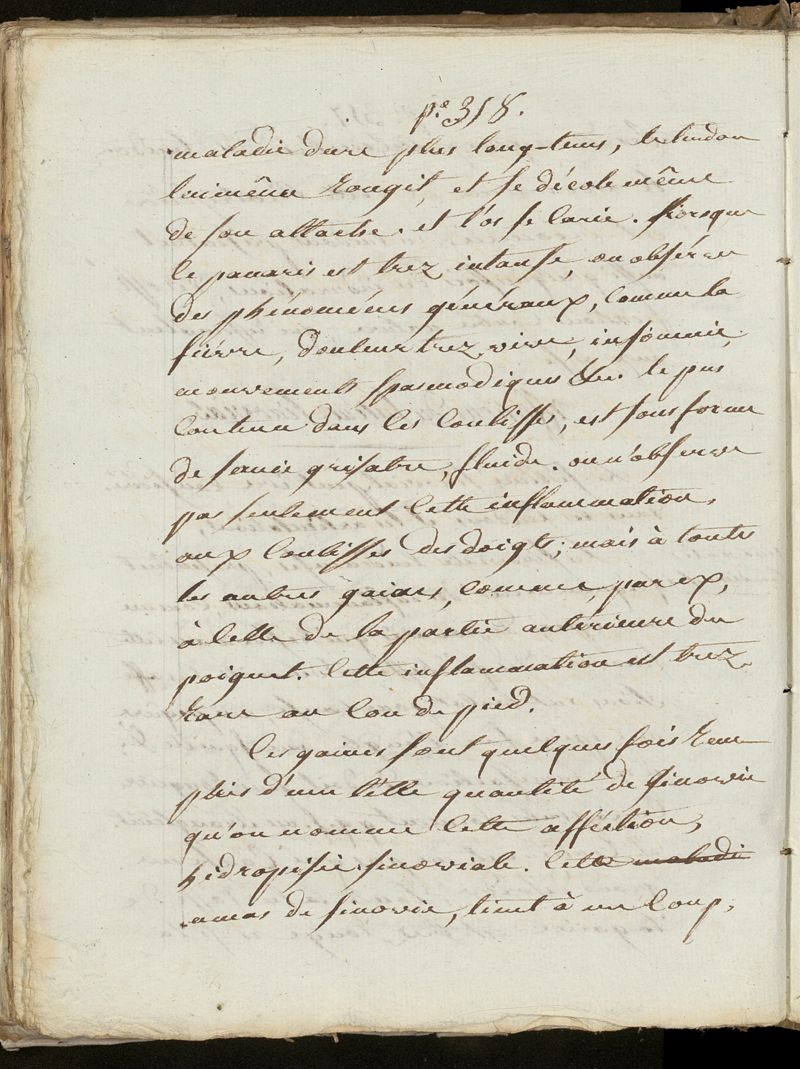 p.e 318.
maladie dure plus long-tems, le tendon
lui même rougit, et se décole même
de son attache. et l'os se carie. Lorsque
le panaris est trez intanse, on obsérve
des phénoménes généraux, comme la
fiévre, douleur trez vive, insomnie,
mouvements spasmodiques &c. le pus
contenu dans les coulisses, est sous forme
de sanie grisatre, fluide. on n'observe
pas seulement cette inflammation,
aux coulisses des doigts; mais à toutes
les autres gaines, comme, par ex,
à celle de la partie antérieure du
poignet. Cette inflammation est trez
rare au cou de pied.
Les gaines sont quelques fois rem-
plis d'une télle quantité de Sinovie
qu'on nomme cette afféction,
hidropisie sinoviale. Cette maladie
amas de sinovie, tient à un coup,